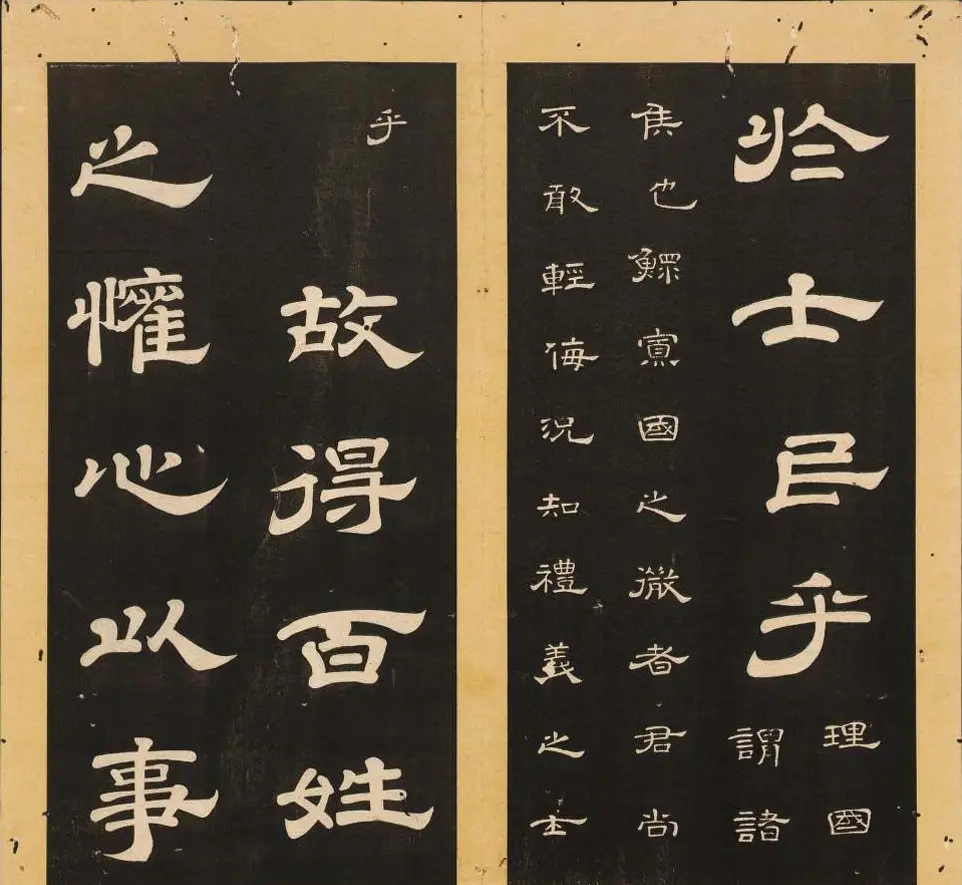 於士民乎理國
謂諸
侯也鰥寡國之微者君尚
不敢輕侮況知禮義之士
乎
故得百姓
之懽心以事